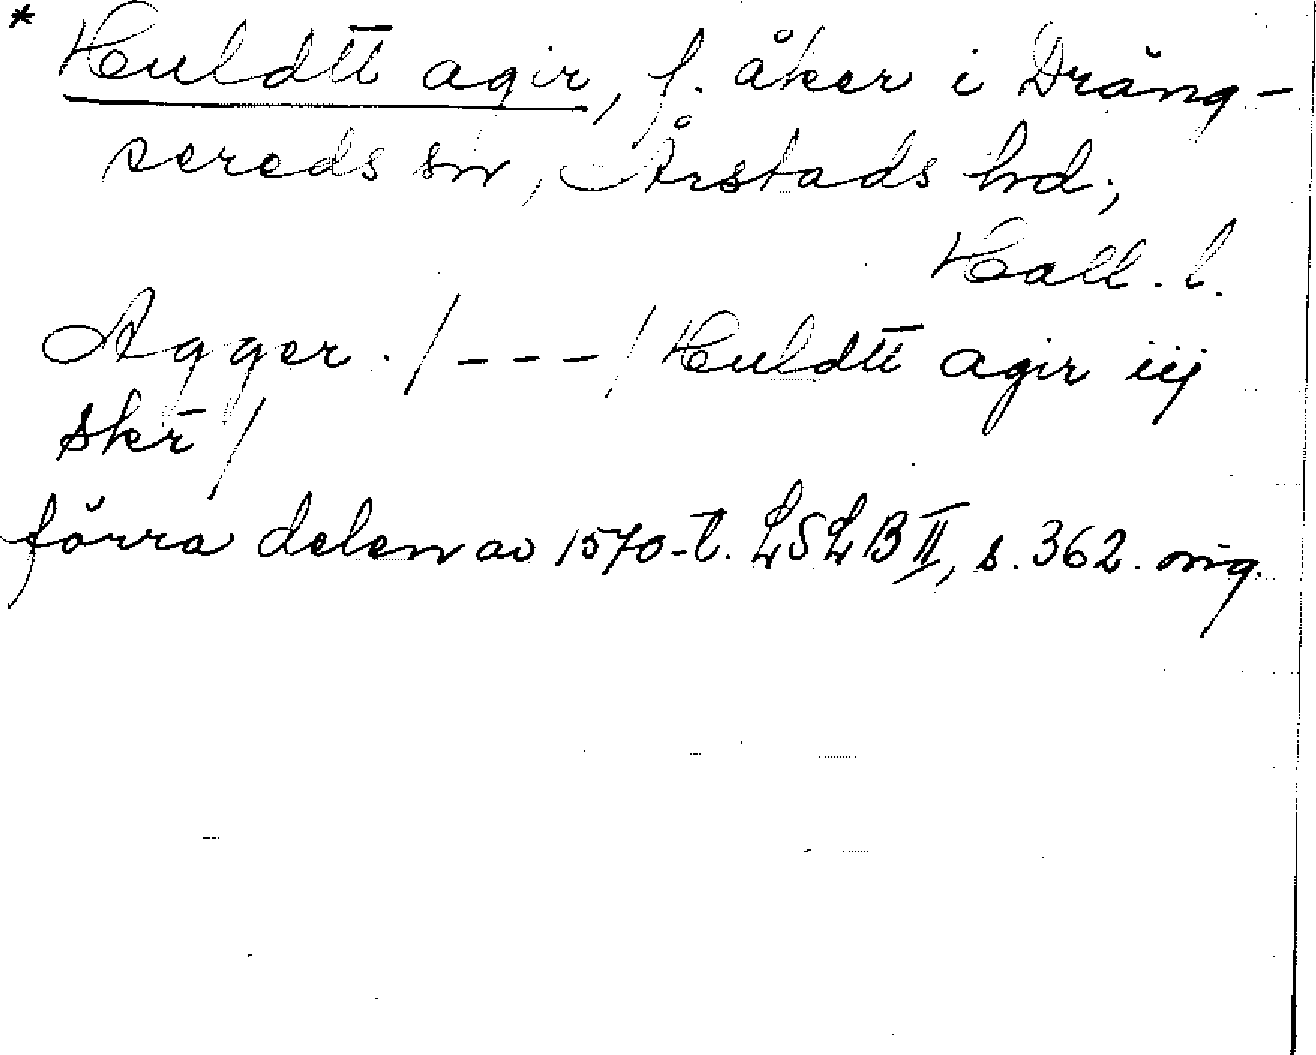 * Huldtt agir, f. åker i Dräng-
sereds sn, Årstads hd;
Hall. l.
Agger. /---/ Huldtt agir iij
skr̄ /
förra delen av 1570-t. LSLB II, s. 362. orig.